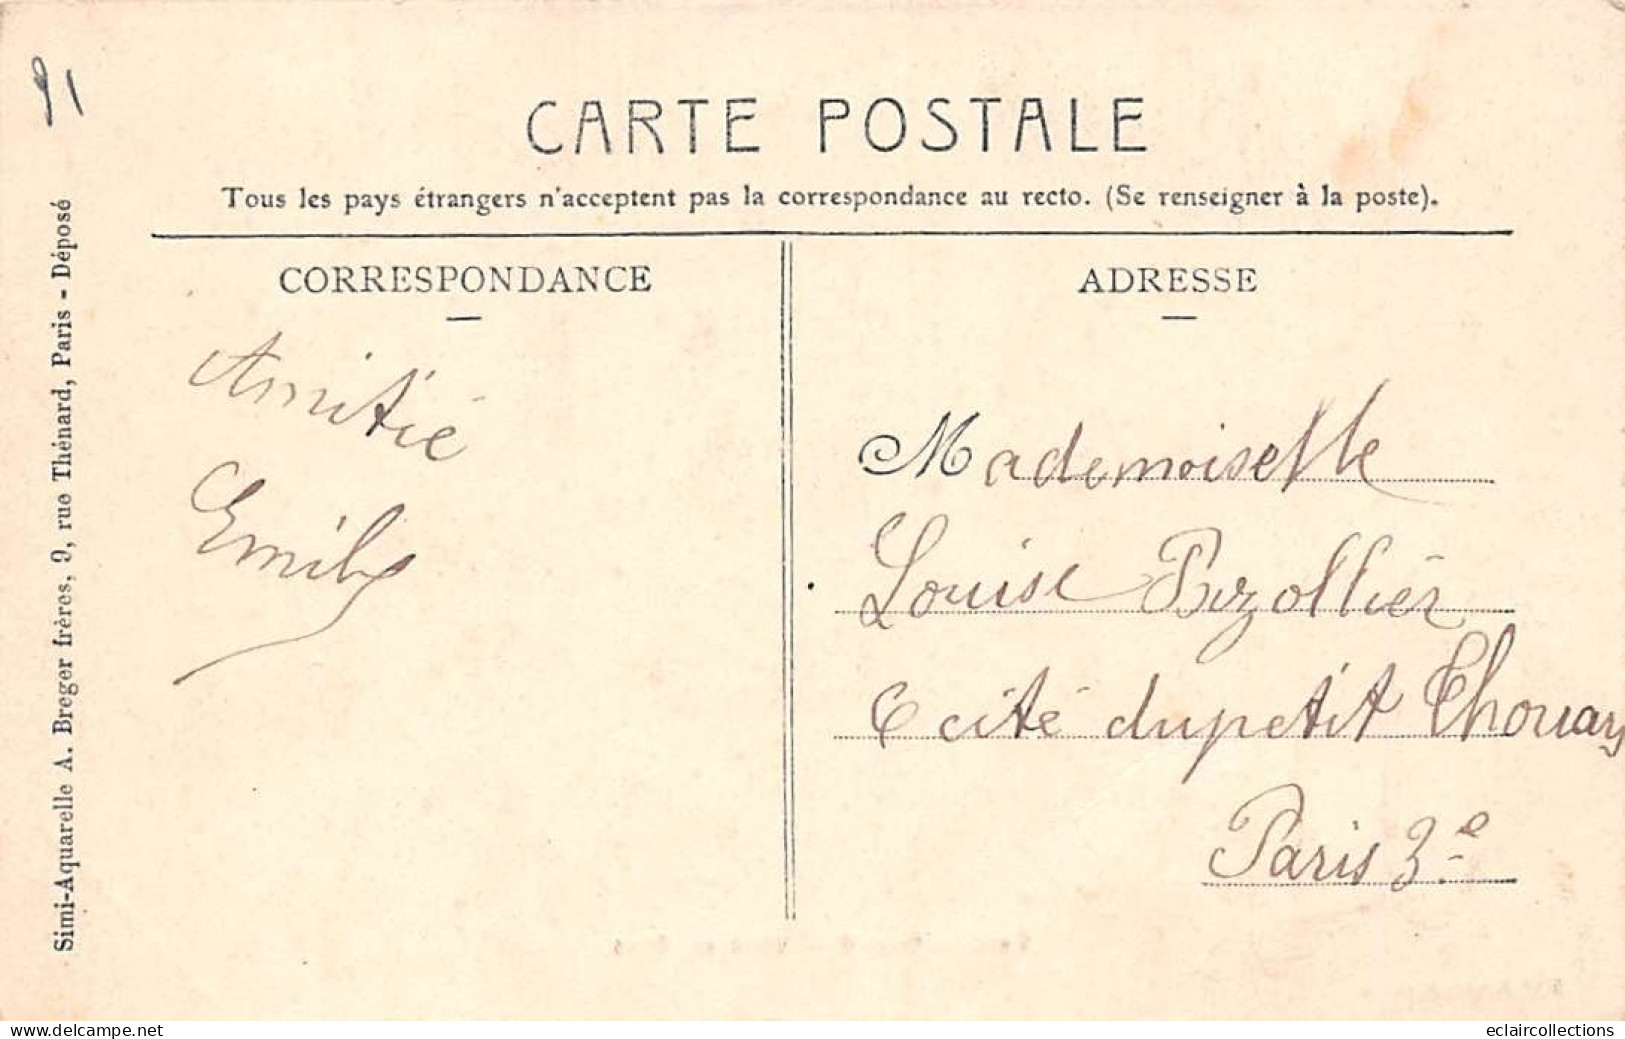 91
CARTE POSTALE
Tous les pays étrangers n'acceptent pas la correspondance au recto. (Se renseigner à la poste).
CORRESPONDANCE
Amitié
Emily
ADRESSE
Mademoiselle
Louise
6 cité du petit Thouars
Paris 3e
Simi-Aquarelle A. Breger frères, 9, rue Thénard, Paris - Déposé
www.delcampe.net
eclaircollections